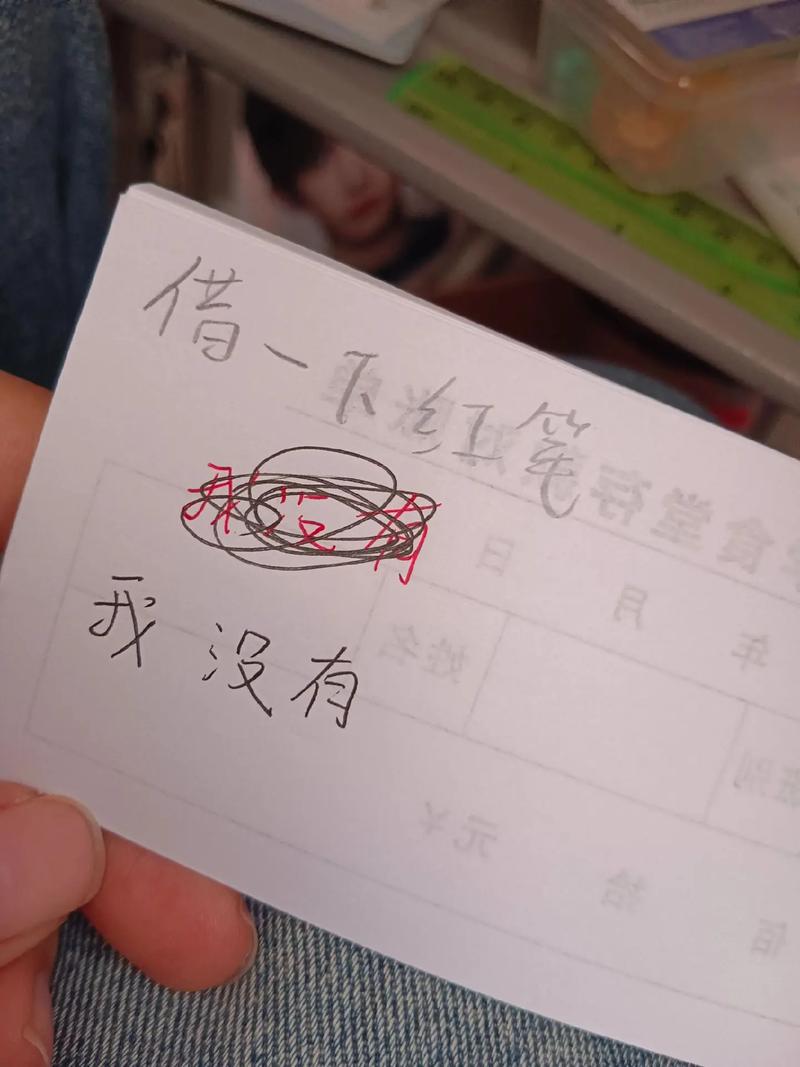 借一下红笔
我没有
我没有